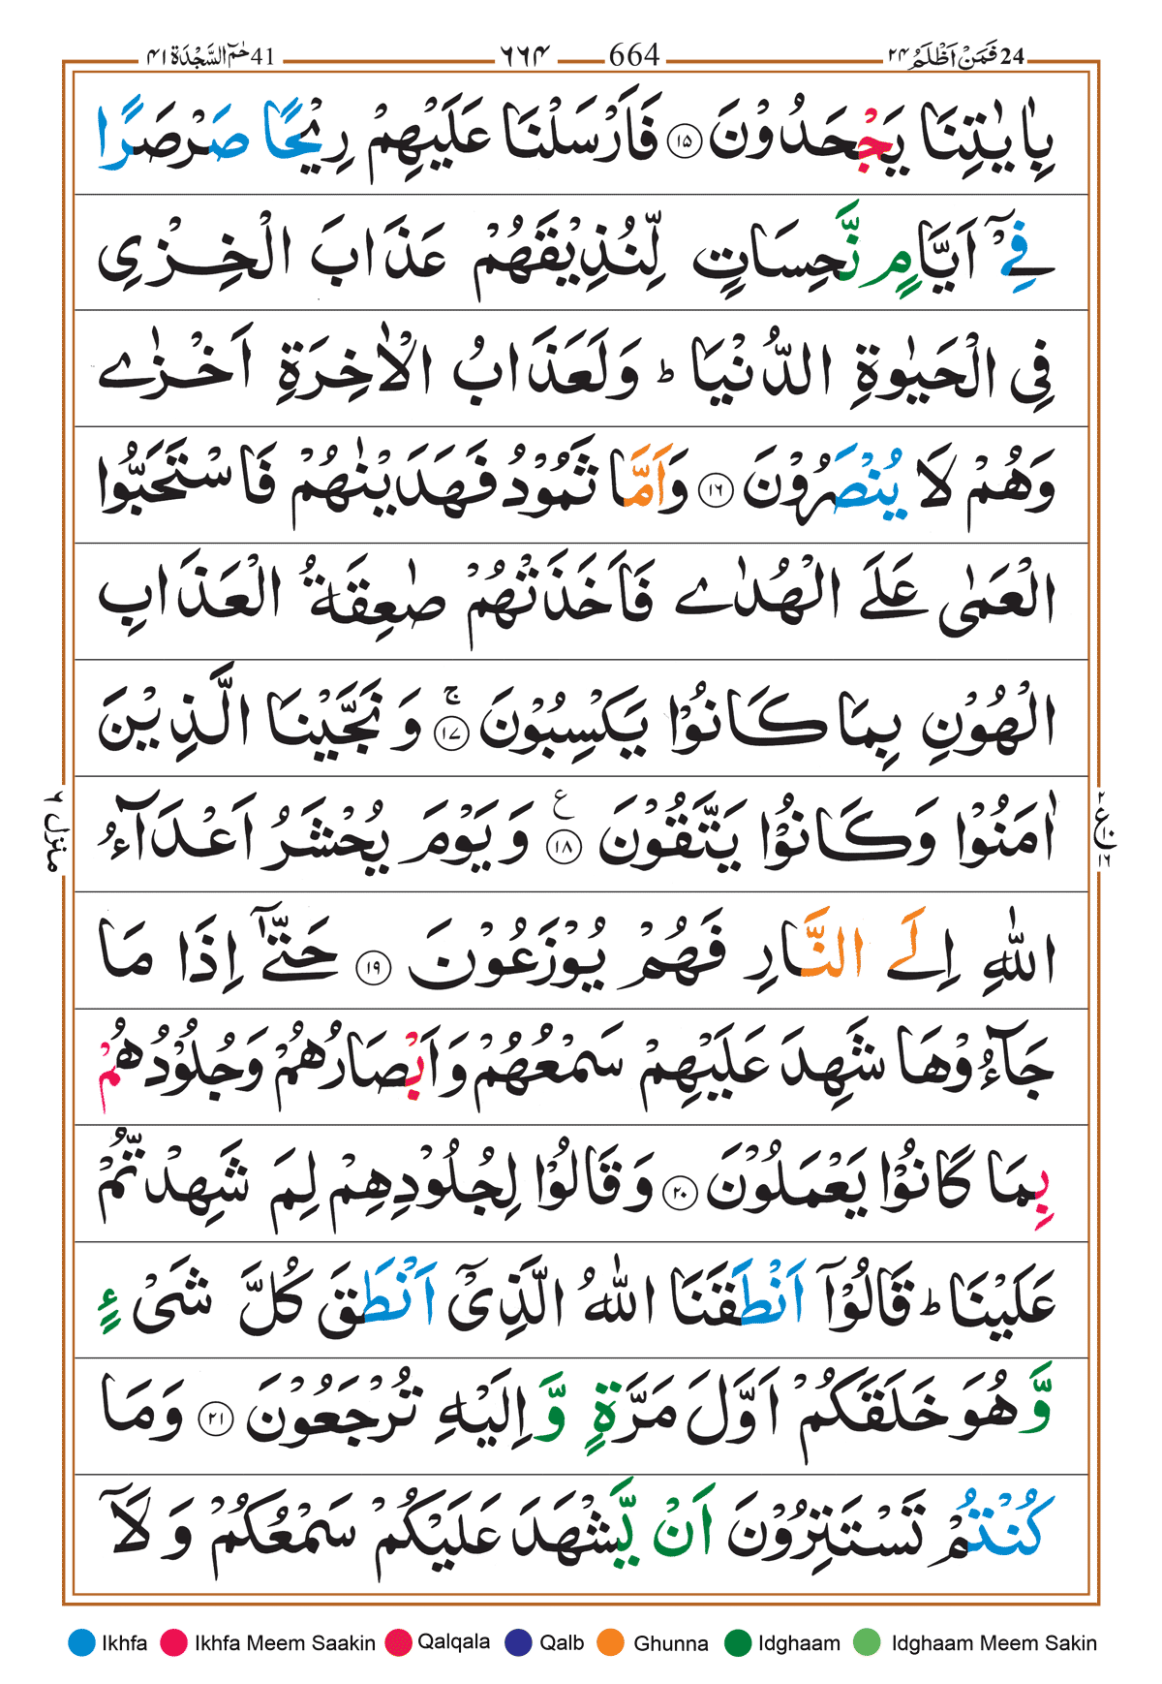 24 فَمَنْ اَظْلَمُ ۲۴ 664 ۶۶۴ 41 حٰمٓ السَّجْدَة ۴۱
بِاٰيٰتِنَا يَجْحَدُوْنَ ۝۱۵ فَاَرْسَلْنَا عَلَيْهِمْ رِيْحًا صَرْصَرًا
فِيْٓ اَيَّامٍ نَّحِسَاتٍ لِّنُذِيْقَهُمْ عَذَابَ الْخِزْىِ
فِى الْحَيٰوةِ الدُّنْيَا ؕ وَلَعَذَابُ الْاٰخِرَةِ اَخْزٰى
وَهُمْ لَا يُنْصَرُوْنَ ۝۱۶ وَاَمَّا ثَمُوْدُ فَهَدَيْنٰهُمْ فَاسْتَحَبُّوا
الْعَمٰى عَلَى الْهُدٰى فَاَخَذَتْهُمْ صٰعِقَةُ الْعَذَابِ
الْهُوْنِ بِمَا كَانُوْا يَكْسِبُوْنَ ۚ۝۱۷ وَ نَجَّيْنَا الَّذِيْنَ
اٰمَنُوْا وَكَانُوْا يَتَّقُوْنَ ۝۱۸ ع وَ يَوْمَ يُحْشَرُ اَعْدَآءُ
اللّٰهِ اِلَى النَّارِ فَهُمْ يُوْزَعُوْنَ ۝۱۹ حَتّٰٓى اِذَا مَا
جَآءُوْهَا شَهِدَ عَلَيْهِمْ سَمْعُهُمْ وَاَبْصَارُهُمْ وَجُلُوْدُهُمْ
بِمَا كَانُوْا يَعْمَلُوْنَ ۝۲۰ وَقَالُوْا لِجُلُوْدِهِمْ لِمَ شَهِدْتُّمْ
عَلَيْنَا ؕ قَالُوْٓا اَنْطَقَنَا اللّٰهُ الَّذِىْٓ اَنْطَقَ كُلَّ شَىْءٍ
وَّ هُوَ خَلَقَكُمْ اَوَّلَ مَرَّةٍ وَّ اِلَيْهِ تُرْجَعُوْنَ ۝۲۱ وَمَا
كُنْتُمْ تَسْتَتِرُوْنَ اَنْ يَّشْهَدَ عَلَيْكُمْ سَمْعُكُمْ وَ لَآ
منزل ۶
۲ ع ۱۰ ۱۶
Ikhfa Ikhfa Meem Saakin Qalqala Qalb Ghunna Idghaam Idghaam Meem Sakin